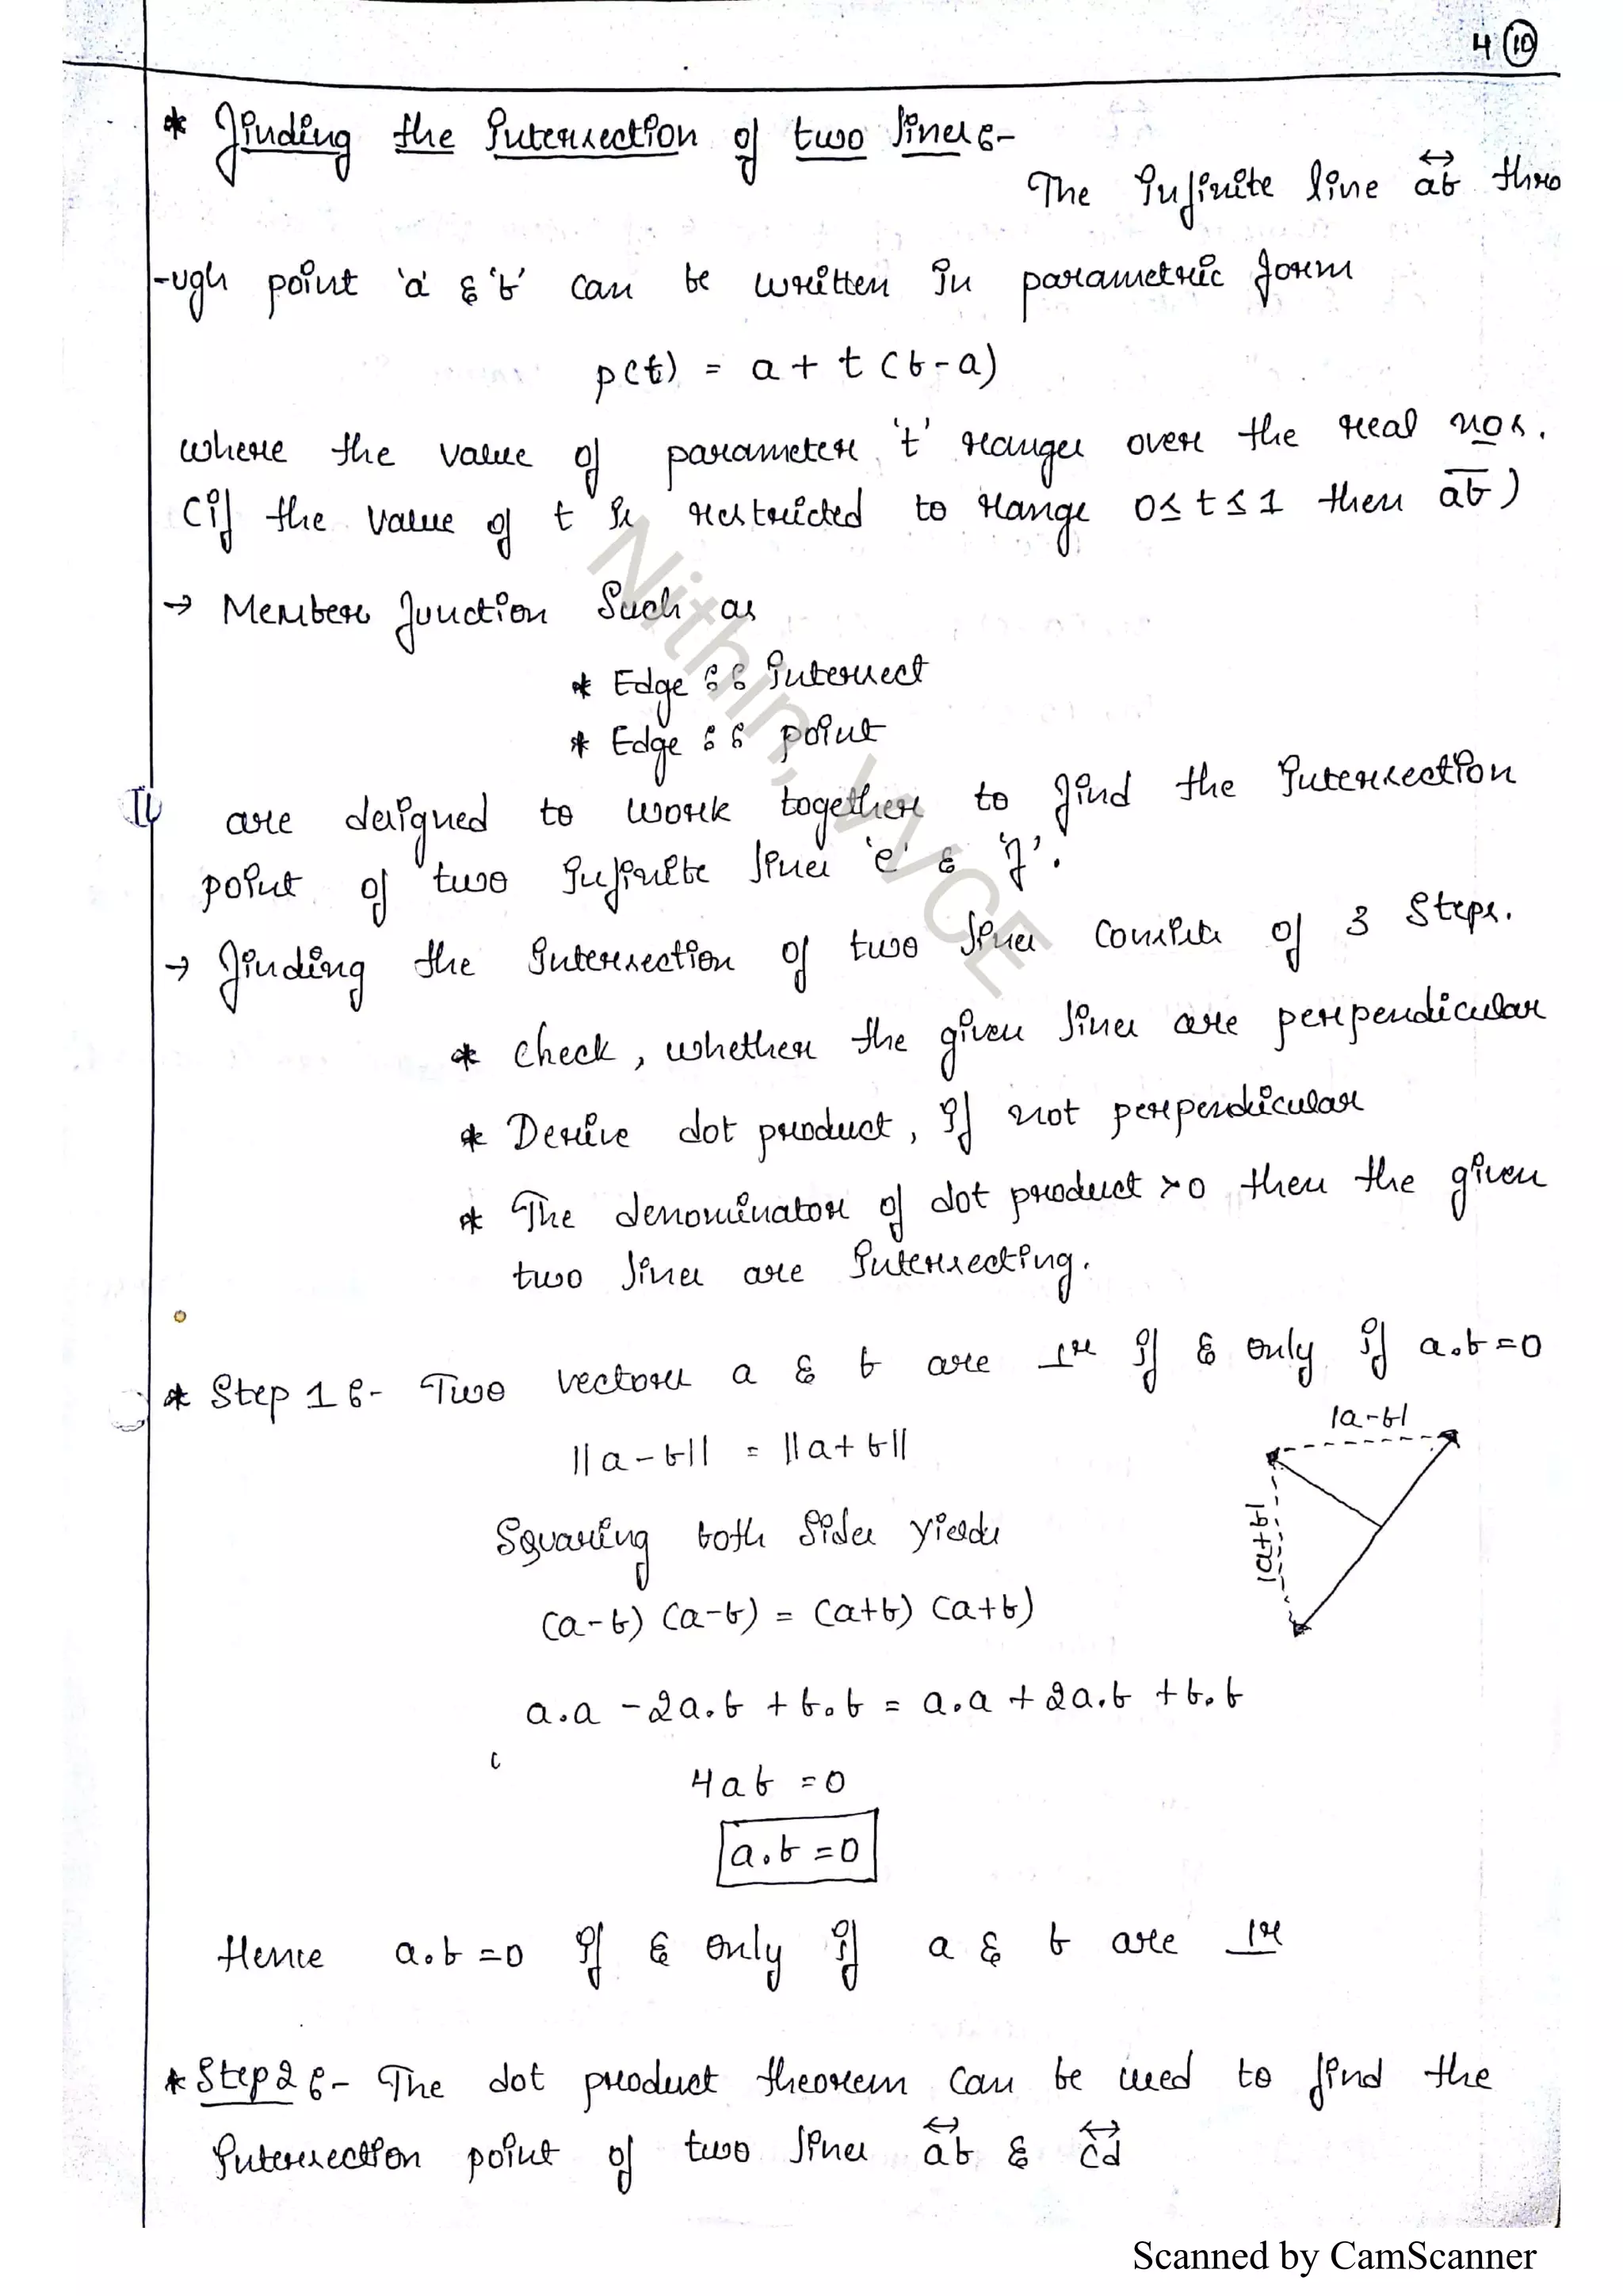 4 10
* Finding the Intersection of two lines:-
The Infinite line ab thro
-ugh point 'a' & 'b' can be written in parametric form
p(t) = a + t (b-a)
where the value of parameter 't' ranges over the real nos.
(if the value of t is restricted to range 0≤t≤1 then ab)
→ Member function such as
* Edge :: Intersect
* Edge :: point
are designed to work together to find the Intersection
point of two Infinite lines 'e' & 'f'.
→ finding the Intersection of two lines consists of 3 steps.
* check, whether the given lines are perpendicular
* Derive dot product, If not perpendicular
* The denominator of dot product >0 then the given
two lines are Intersecting.
* Step 1:- Two vectors a & b are ⊥r if & only if a.b=0
|a-b|
||a-b|| = ||a+b||
|a+b|
Squaring both sides yields
(a-b) (a-b) = (a+b) (a+b)
a.a -2a.b +b.b = a.a +2a.b +b.b
4ab =0
a.b =0
Hence a.b =0 If & only if a & b are ⊥r
* Step2:- The dot product theorem can be used to find the
Intersection point of two lines ab & cd
Nithin, VVCE
Scanned by CamScanner